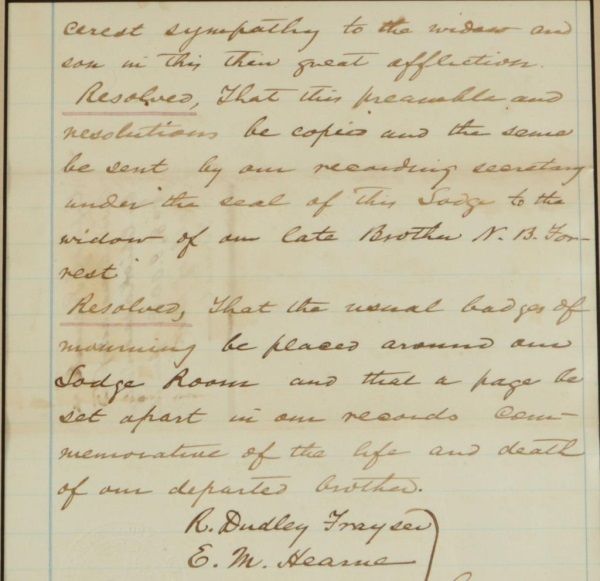 cerest sympathy to the widow and
son in this their great affliction.
Resolved, That this preamble and
resolutions be copied and the same
be sent by our recording secretary
under the seal of this Lodge to the
widow of our late Brother N. B. For-
rest.
Resolved, That the usual badges of
mourning be placed around our
Lodge Room and that a page be
set apart in our records com-
memorative of the life and death
of our departed brother.
R. Dudley Frayser
E. M. Hearne